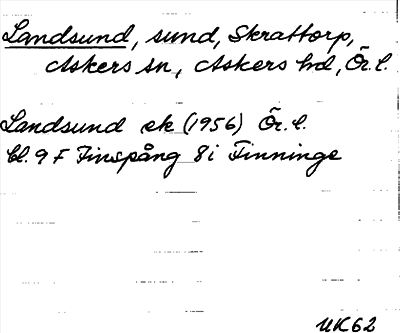 Landsund, sund, Skrattorp,
Askers sn, Askers hd, Ör. l.
Landsund ek (1956) Ör. l.
bl. 9 F Finspång 8 i Finninge
UK 62